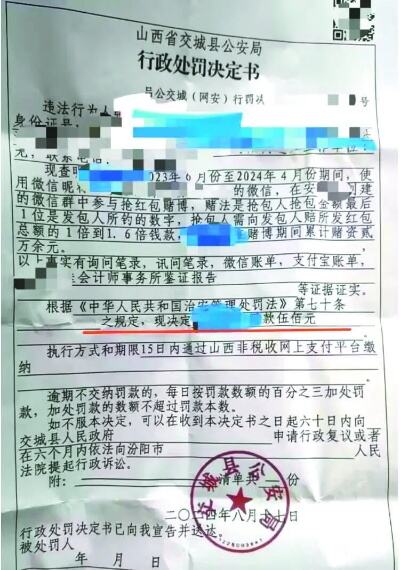 山西省交城县公安局
行政处罚决定书
公交城（网安）行罚决 号
违法行为人
身份证号
元，联系电话
现查明 2023年6月份至2024年4月份期间，使
用微信昵称 的微信，在安 建
的微信群中参与抢红包赌博，赌法是抢包人抢包金额最后
1位是发包人所钓的数字，抢包人需向发包人赔所发红包
总额的1倍到1.6倍钱款， 赌博期间累计赌资贰
万余元。
以上事实有询问笔录，讯问笔录，微信账单，支付宝账单，
会计师事务所鉴证报告
等证据证实。
根据《中华人民共和国治安管理处罚法》第七十条
之规定，现决定 款伍佰元
执行方式和期限15日内通过山西非税收网上支付平台缴
纳
逾期不交纳罚款的，每日按罚款数额的百分之三加处罚
款，加处罚款的数额不超过罚款本数。
如不服本决定，可以在收到本决定书之日起六十日内向
交城县人民政府 申请行政复议或者
在六个月内依法向汾阳市 人民
法院提起行政诉讼。
附： 清单共 份
交城县公安局
二〇二四年八月 十日
行政处罚决定书已向我宣告并送达。
被处罚人
年 月 日